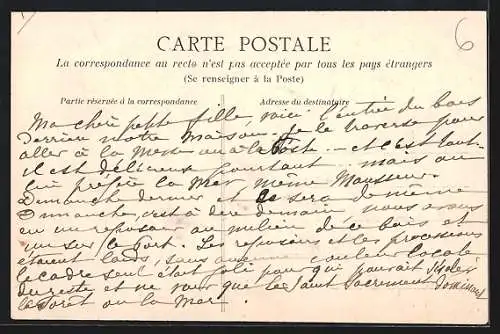 6
CARTE POSTALE
La correspondance au recto n'est pas acceptée par tous les pays étrangers
(Se renseigner à la Poste)
Partie réservée à la correspondance
Adresse du destinataire
Ma chère petite fille, voici l'entrée du bois
derrière notre maison. Je le traverse pour
aller à la messe ou à la Poste - et c'est tout.
il est délicieux pourtant, mais on
lui préfère la mer, même Monsieur.
Dimanche dernier et ce sera de même
Dimanche, c'est à dire demain nous avons
eu un reposoir au milieu de ce bois et
un sur le port. Les reposoirs et les processions
étaient laids, sans aucune couleur locale
le cadre seul était joli pour qui pouvait s'isoler
du reste et ne voir que le Saint Sacrement dominant
la forêt ou la Mer.